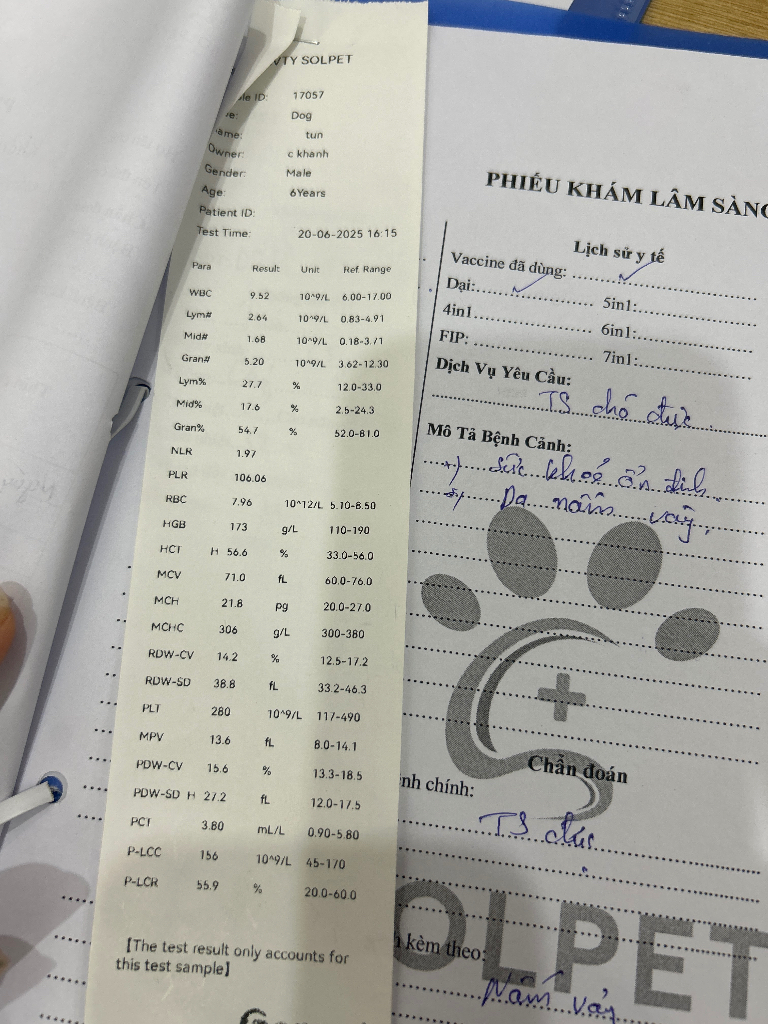 VTY SOLPET
le ID: 17057
e: Dog
ame: tun
Owner: c khanh
Gender: Male
Age: 6Years
Patient ID:
Test Time: 20-06-2025 16:15
Para Result Unit Ref. Range
WBC 9.52 10^9/L 6.00-17.00
Lym# 2.64 10^9/L 0.83-4.91
Mid# 1.68 10^9/L 0.18-3.71
Gran# 5.20 10^9/L 3.62-12.30
Lym% 27.7 % 12.0-33.0
Mid% 17.6 % 2.5-24.3
Gran% 54.7 % 52.0-81.0
NLR 1.97
PLR 106.06
RBC 7.96 10^12/L 5.10-8.50
HGB 173 g/L 110-190
HCT H 56.6 % 33.0-56.0
MCV 71.0 fL 60.0-76.0
MCH 21.8 pg 20.0-27.0
MCHC 306 g/L 300-380
RDW-CV 14.2 % 12.5-17.2
RDW-SD 38.8 fL 33.2-46.3
PLT 280 10^9/L 117-490
MPV 13.6 fL 8.0-14.1
PDW-CV 15.6 % 13.3-18.5
PDW-SD H 27.2 fL 12.0-17.5
PCT 3.80 mL/L 0.90-5.80
P-LCC 156 10^9/L 45-170
P-LCR 55.9 % 20.0-60.0
[The test result only accounts for
this test sample]
PHIẾU KHÁM LÂM SÀNG
Lịch sử y tế
Vaccine đã dùng:
Dại: 5in1:
4in1 6in1:
FIP: 7in1:
Dịch Vụ Yêu Cầu:
TS chó đực
Mô Tả Bệnh Cảnh:
+) sức khoẻ ổn định
+) Da nấm vảy,
Chẩn đoán
nh chính:
TS đực
kèm theo:
Nấm vảy
OLPET